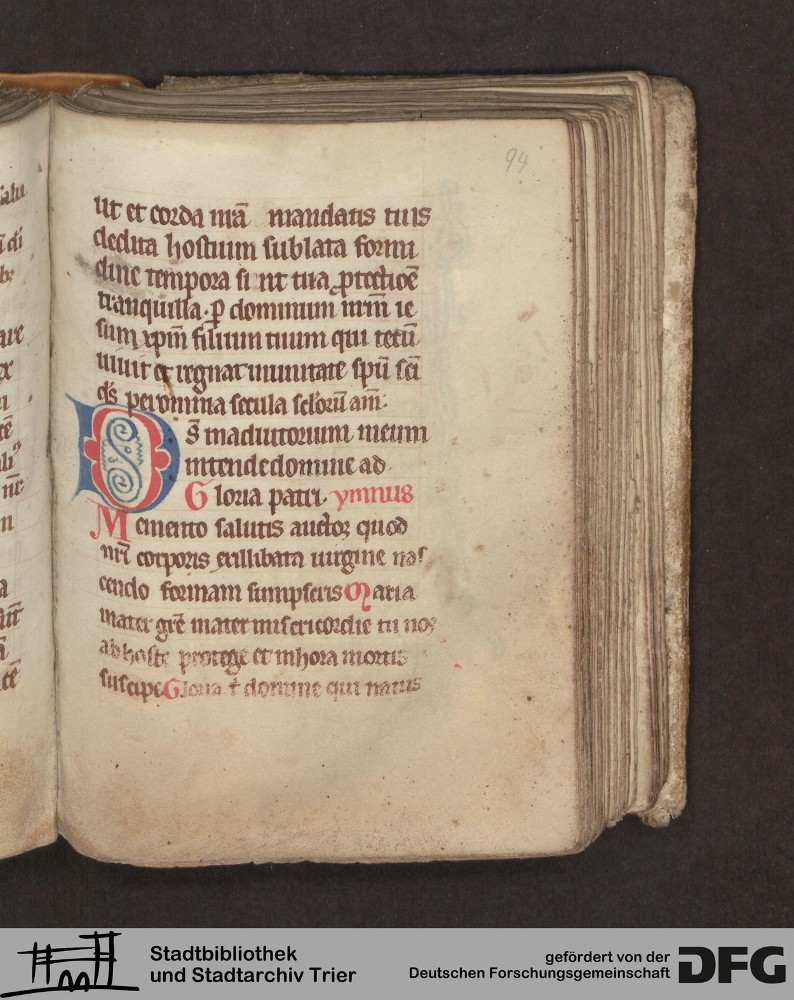 94
ut et corda nr̄a mandatis tuis
dedita hostium sublata formi
dine tempora sint tua ꝓtectiōē
tranquilla· ꝑ dominum nr̄m ie
sum xp̄m filium tuum qui tecū
uiuit et regnat in unitate sp̄u sc̄i
ds̄ per omnia secula sclorū am̄·
Ds̄ in adiutorium meum
intende domine ad·
Gloria patri· ymnus
Memento salutis auctor quod
nr̄i corporis exillibata uirgine nas
cendo formam sumpseris Maria
mater gr̄e mater misericordie tu nos
ab hoste protege et in hora mortis
suscipe Gloria t̄ domine qui natus
Stadtbibliothek
und Stadtarchiv Trier
gefördert von der
Deutschen Forschungsgemeinschaft
DFG